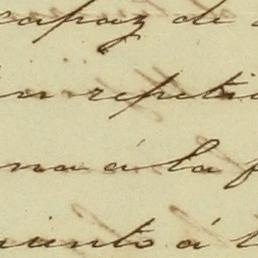 capaz de
repeti
na á la f
miento á l